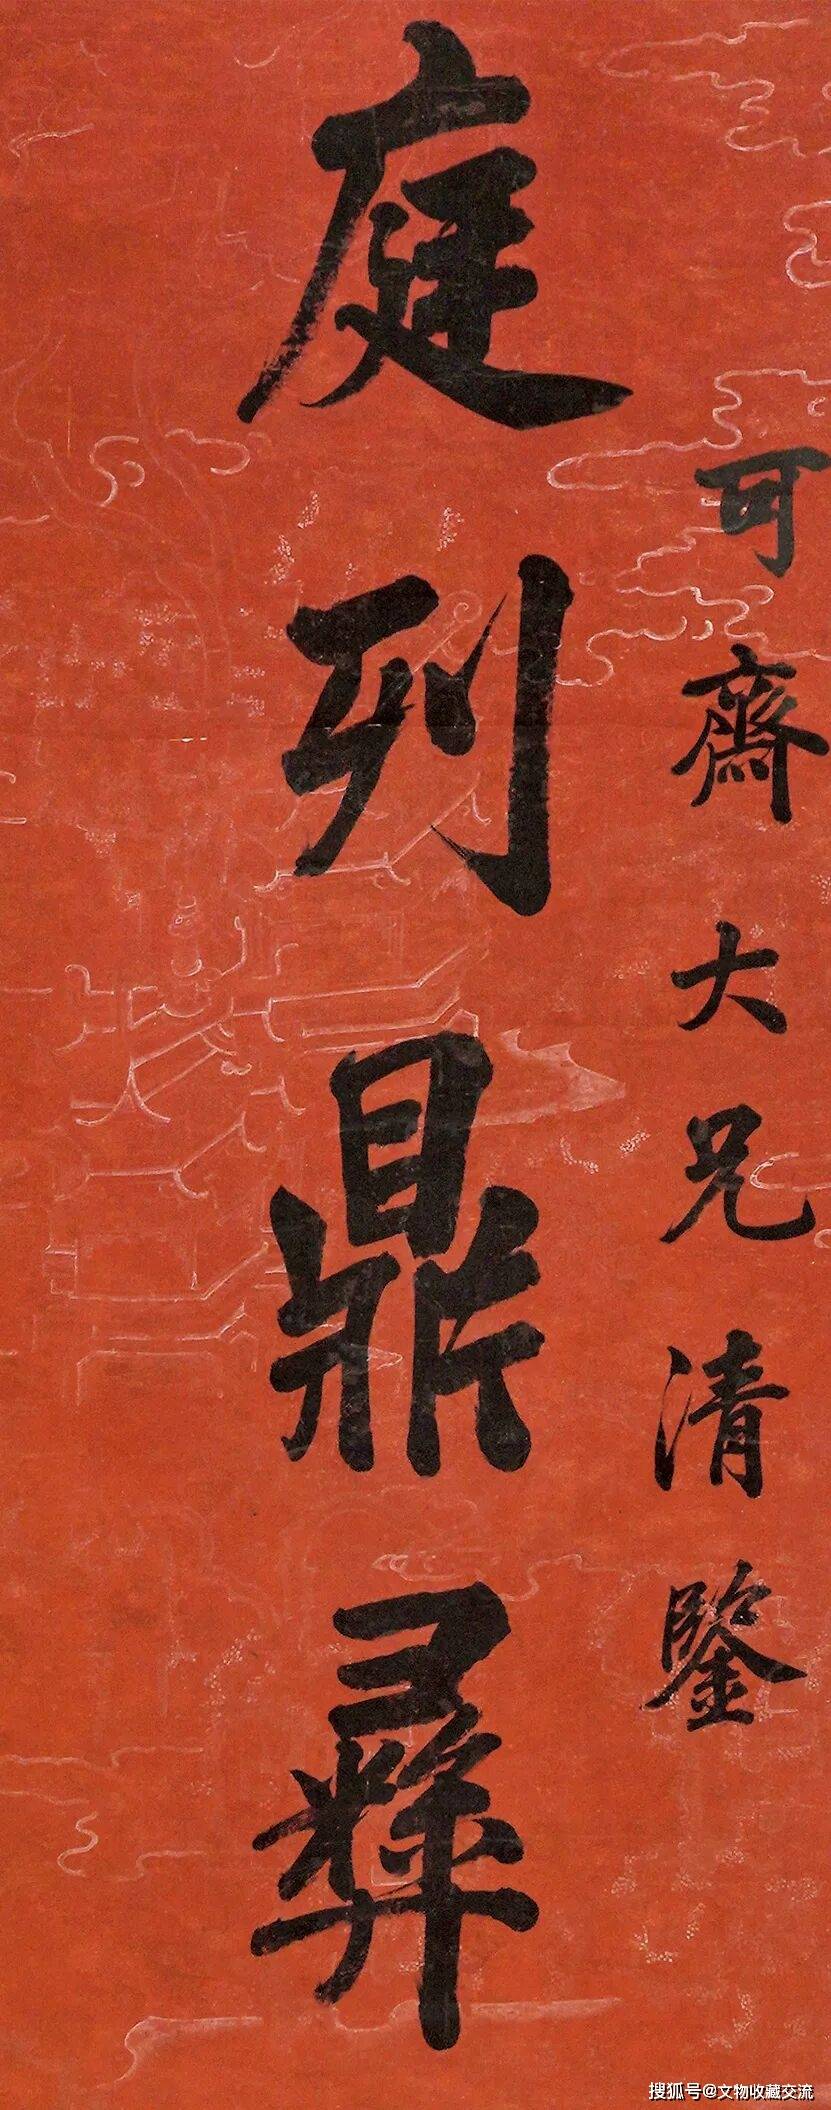 可齋大兄清鑒
庭列鼎彝
搜狐号@文物收藏交流